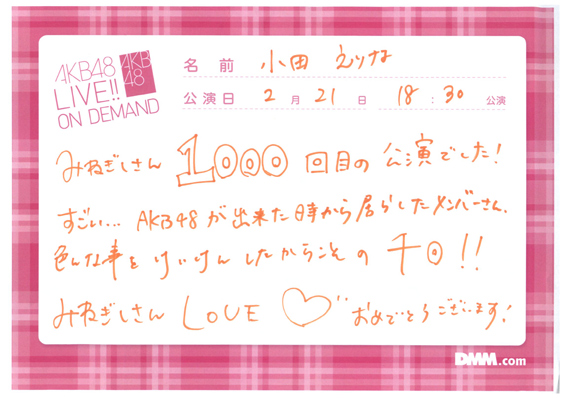 AKB48
LIVE!!
ON DEMAND
AKB
48
名前 小田えりな
公演日 2月21日 18:30公演
みねぎしさん 1000回目の公演でした!
すごい... AKB48が出来た時から居らしたメンバーさん、
色んな事をけいけんしたからこその 千回!!
みねぎしさん LOVE ♡ おめでとうございます!
DMM.com